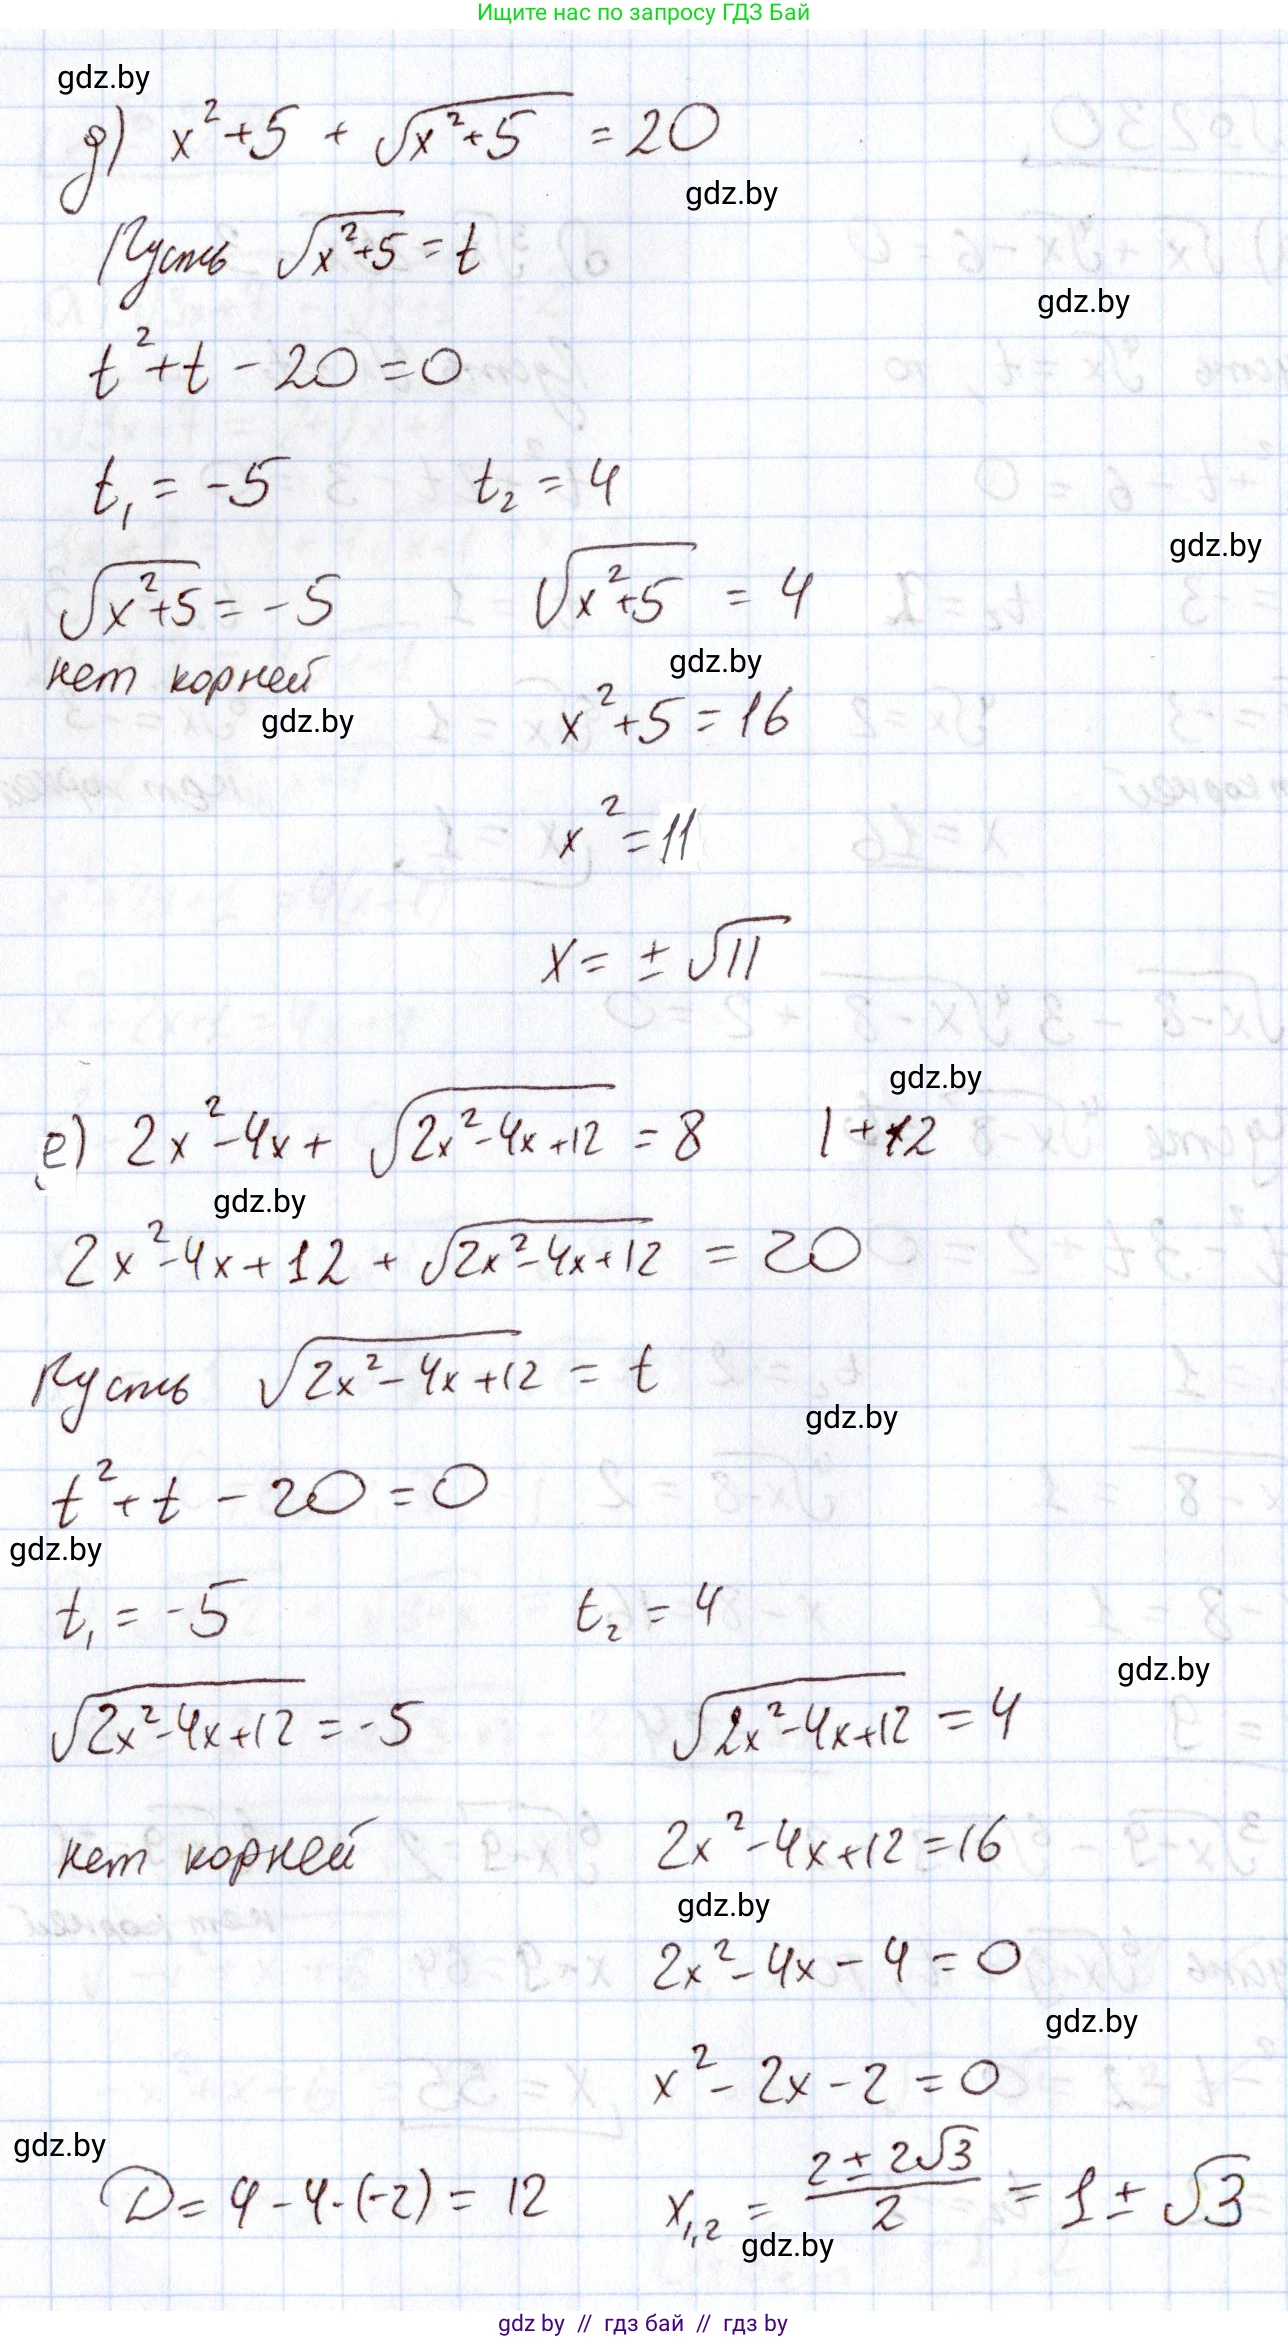 Ищите нас по запросу ГДЗ Бай
gdz.by
д) x² + 5 + √(x² + 5) = 20
gdz.by
Пусть √(x² + 5) = t
gdz.by
t² + t - 20 = 0
t₁ = -5 t₂ = 4
gdz.by
√(x² + 5) = -5 √(x² + 5) = 4
нет корней gdz.by
gdz.by x² + 5 = 16
x² = 11
x = ± √11
gdz.by
е) 2x² - 4x + √(2x² - 4x + 12) = 8 | + 12
gdz.by
2x² - 4x + 12 + √(2x² - 4x + 12) = 20
Пусть √(2x² - 4x + 12) = t
gdz.by
t² + t - 20 = 0
gdz.by
t₁ = -5 t₂ = 4
gdz.by
√(2x² - 4x + 12) = -5 √(2x² - 4x + 12) = 4
нет корней 2x² - 4x + 12 = 16
gdz.by
2x² - 4x - 4 = 0
gdz.by
x² - 2x - 2 = 0
gdz.by
D = 4 - 4 · (-2) = 12 x₁,₂ = (2 ± 2√3)/2 = 1 ± √3
gdz.by
gdz by // гдз бай // гдз by